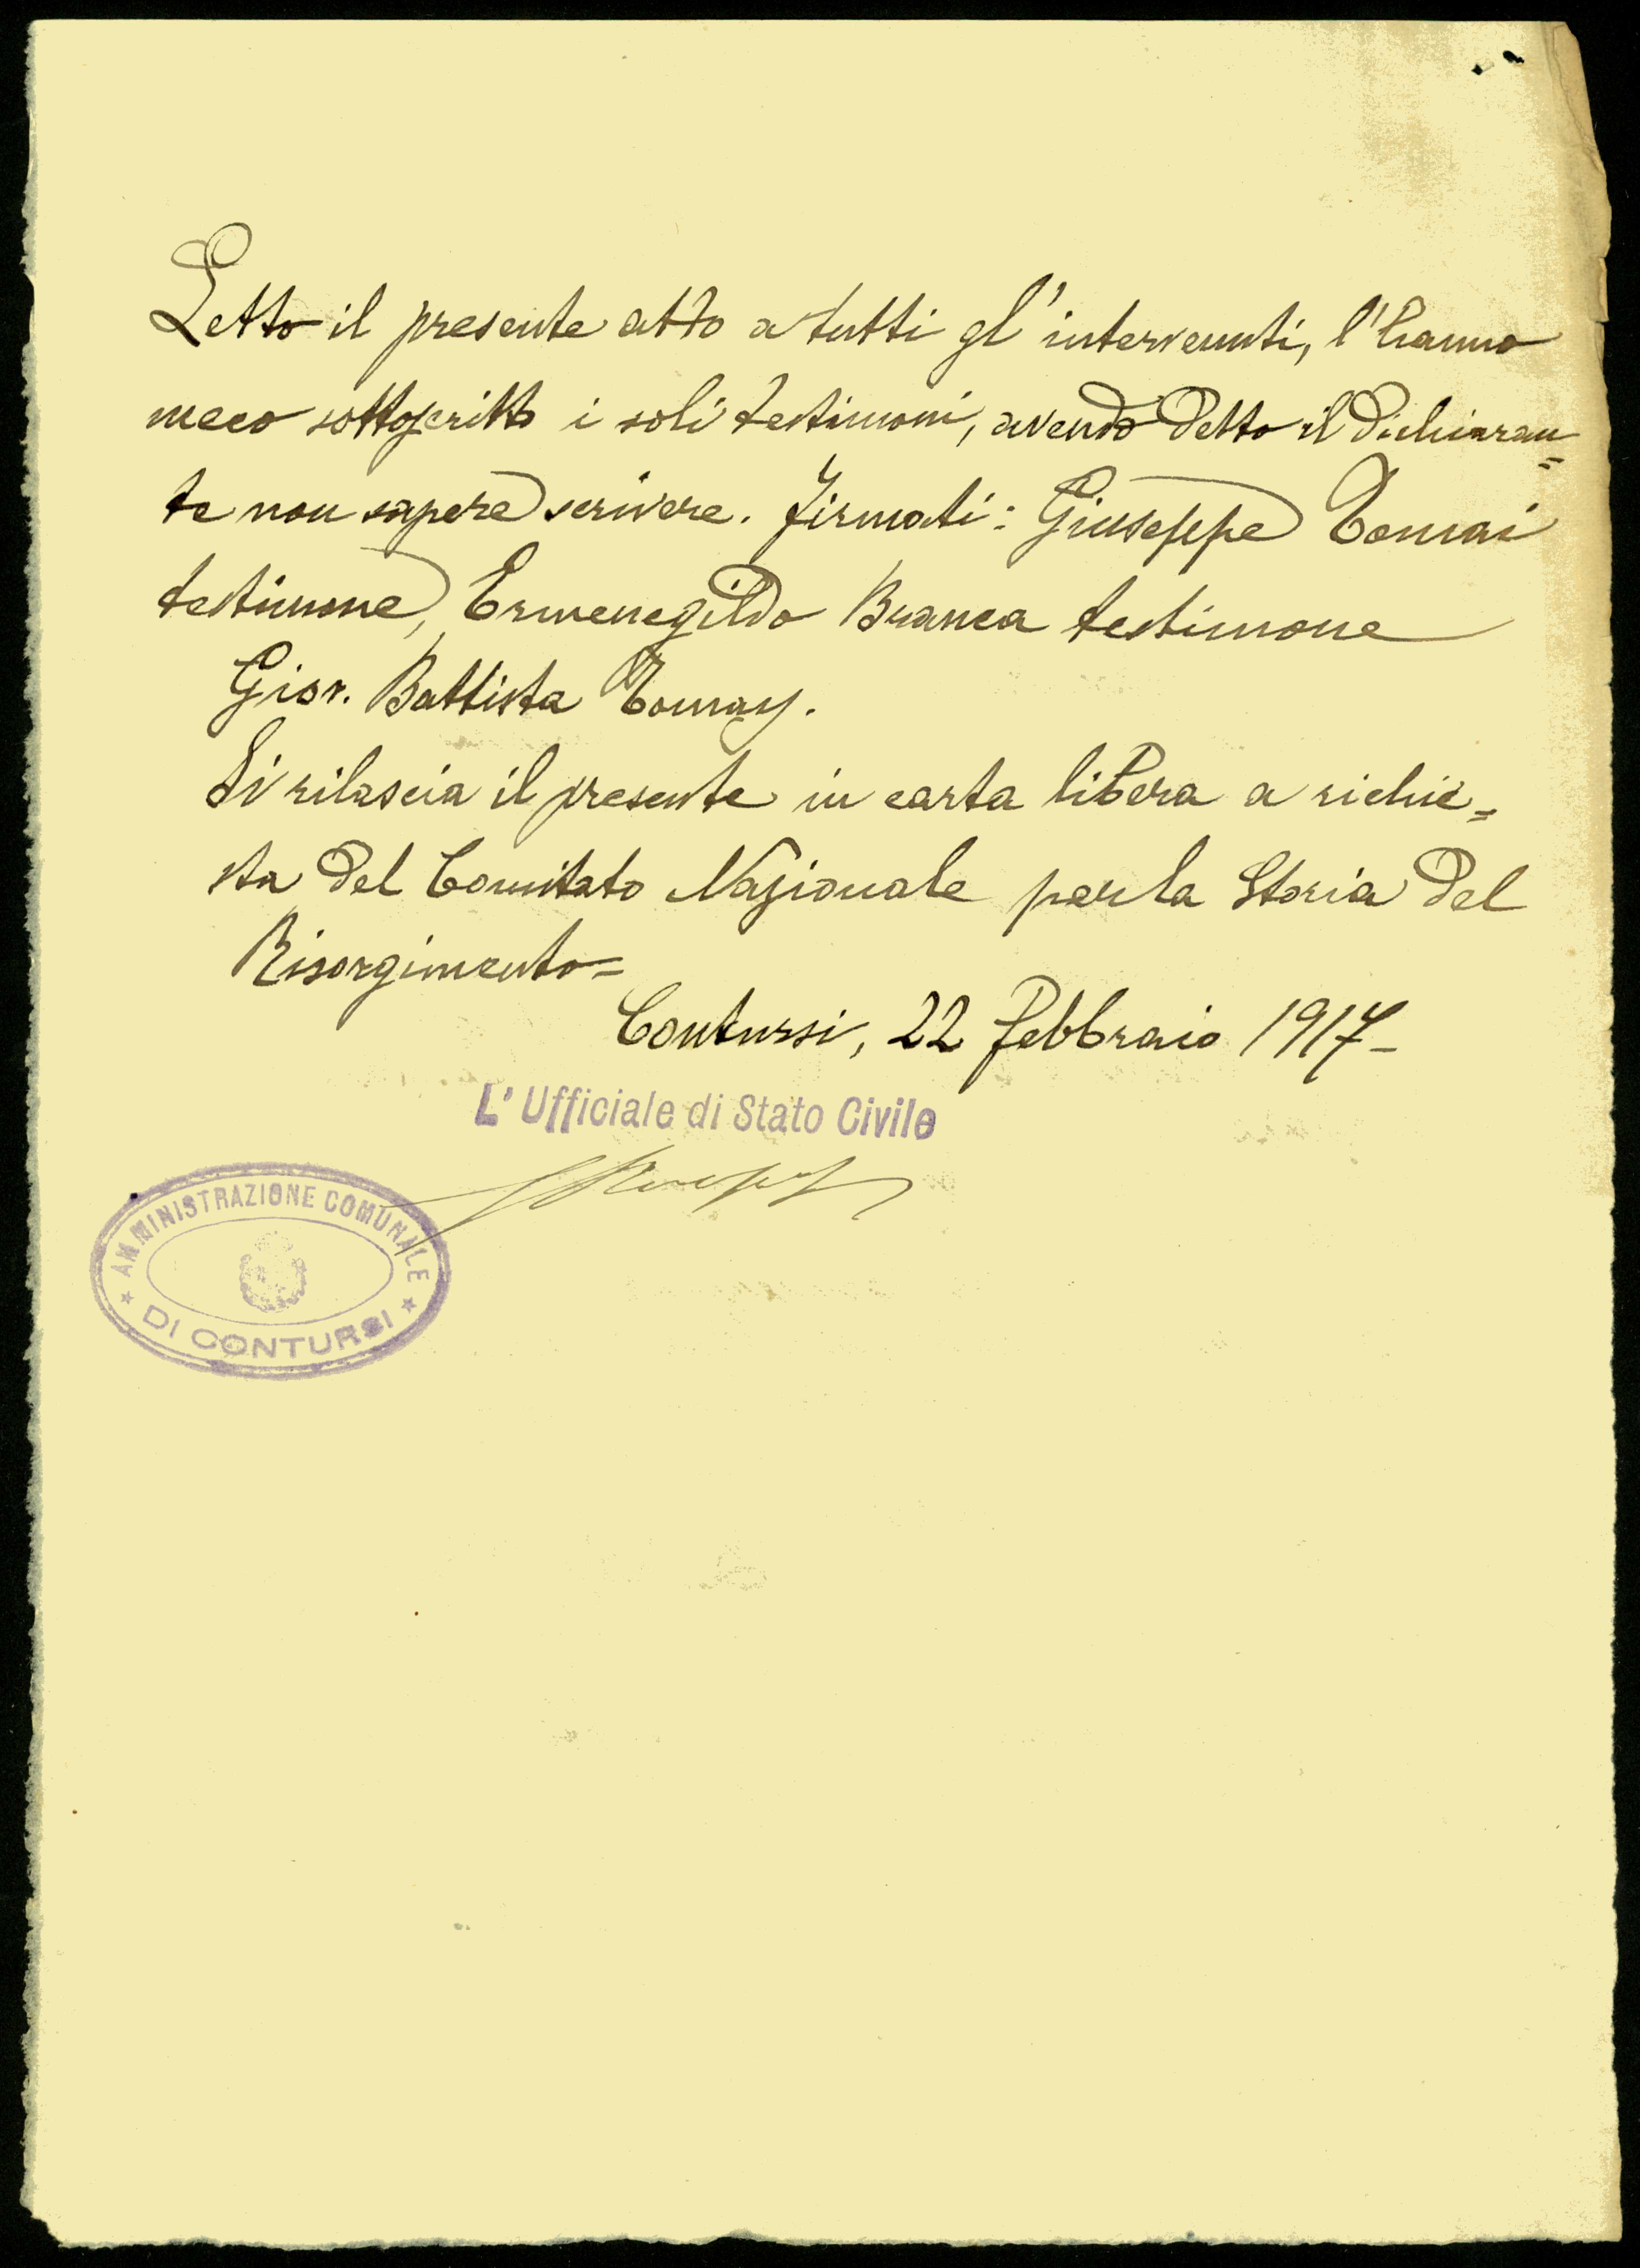 Letto il presente atto a tutti gl'intervenuti, l'hanno
meco sottoscritto i soli testimoni, avendo detto il dichiaran=
te non sapere scrivere. Firmati: Giuseppe Tomai
testimone, Ermenegildo Branca testimone
Giov. Battista Tomay.
Si rilascia il presente in carta libera a richie=
sta del Comitato Nazionale per la Storia del
Risorgimento=
Contursi, 22 Febbraio 1917-
L'Ufficiale di Stato Civile
AMMINISTRAZIONE COMUNALE
* DI CONTURSI *